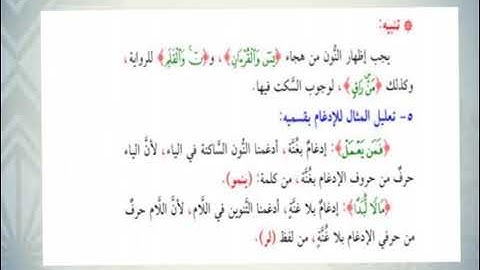 * تنبيه:
يجب إظهار النُّون من هجاء ﴿يسٓ وَٱلْقُرْءَانِ﴾، و﴿نٓ وَٱلْقَلَمِ﴾ للرواية،
وكذلك ﴿مَنْۜ رَاقٍ﴾، لوجوب السَّكت فيها.
٥- تعليل المثال للإدغام بقسميه:
﴿فَمَن يَعْمَلْ﴾: إدغامٌ بغُنَّة، أدغمنا النُّون الساكنة في الياء، لأنَّ الياء
حرفٌ من حروف الإدغام بغُنَّة، من كلمة: (ينمو).
﴿مَالًا لُّبَدًا﴾: إدغامٌ بلا غنَّةٍ، أدغمنا التَّنوين في اللَّام، لأنَّ اللَّام حرفٌ
من حرفي الإدغام بلا غُنَّةٍ، من لفظ (لر).